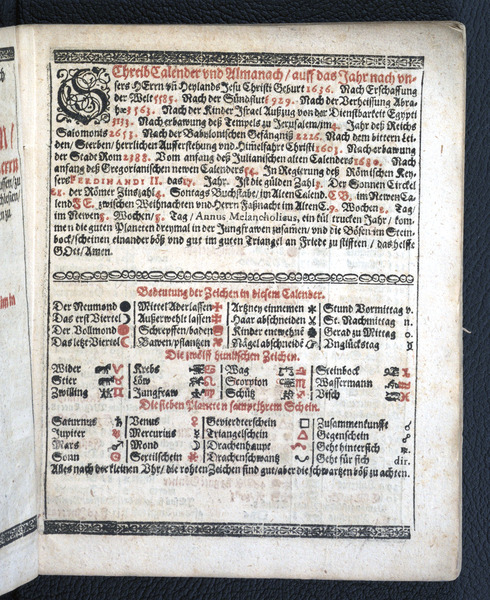 SChreib Calender vnd Almanach / auff das Jahr nach vn-
sers HErrn vñ Heylands Jesu Christi Geburt 1636. Nach Erschaffung
der Welt 5585. Nach der Sündflut 3929. Nach der Verheissung Abra-
hæ 3561. Nach der Kinder Israel Außzug von der Dienstbarkeit Egypti
3133. Nach erbawung deß Tempels zu Jerusalem / im 4. Jahr deß Reichs
Salomonis 2653. Nach der Babylonischen Gefängnuß 2226. Nach dem bittern lei-
den / Sterben / herrlichen Aufferstehung vnd Himelfahrt Christi 1603. Nach erbawung
der Stadt Rom 2388. Vom anfang deß Julianischen alten Calenders 1680. Nach
anfang deß Gregorianischen neween Calenders 54. In Regierung deß Römischen Key-
sers FERDINANDI II. das 17. Jahr. Ist die gülden Zahl 3. Der Sonnen Circkel
21. der Römer Zinszahl 4. Sontags Buchstabe / im alten Calend. CB, im Newen Ca-
lend. FE. zwischen Weihnachten vnd Herrn Faßnacht im Alten 9. Wochen 2. Tag /
im Newen 5. Wochen / 5. Tag / Annus Melancholicus, ein kül trucken Jahr / kom-
men die guten Planeten dreymal in der Jungfrawen zusamen / vnd die Bösen im Stein-
bock / scheinen einander böß vnd gut im guten Triangel an Friede zu stifften / das helffe
GOtt / Amen.
Bedeutung der Zeichen in diesem Calender.
Der Neumond Mittel Aderlassen Artzney einnemen Stund Vormittag v.
Das erst Viertel Außerwehlt lassen Haar abschneiden St. Nachmittag n.
Der Vollmond Schrepffen / baden Kinder entwehnē Grad zu Mittag o.
Das letzt Viertel Bawen / pflantzen Nägel abschneidē Vnglückstag
Die zwölff himlischen Zeichen.
Wider ♈ Krebs ♋ Wag ♎ Steinbock ♑
Stier ♉ Löw ♌ Scorpion ♏ Wassermann ♒
Zwilling ♊ Jungfraw ♍ Schütz ♐ Visch ♓
Die sieben Planeten sampt ihrem Schein.
Saturnus ♄ Venus ♀ Gevierdterschein □ Zusammenkunfft ☌
Jupiter ♃ Mercurius ☿ Triangelschein △ Gegenschein ☍
Mars ♂ Mond ☽ Drachenhaupt ☊ Geht hintersich
Sonn ☉ Sextilschein ✶ Drachenschwantz ☋ Geht für sich dir.
Alles nach der kleinen Vhr / die rohten Zeichen sind gut / aber die schwartzen böß zu achten.